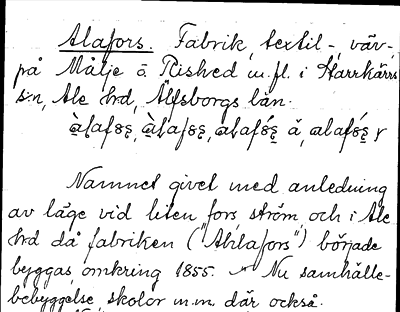 Alafors. Fabrik, textil-, väv-,
på Målje ö. Rished m.fl. i Starrkärrs
s:n, Ale hrd, Älfsborgs län.
Namnet givet med anledning
av läge vid liten fors ström, och i Ale
hrd då fabriken ("Ahlafors") började
byggas, omkring 1855. – Nu samhälle-
bebyggelse, skolor m.m. där också.